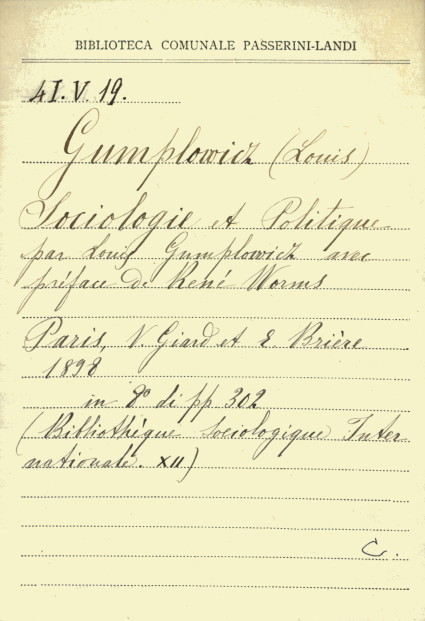 BIBLIOTECA COMUNALE PASSERINI-LANDI
4I.V.19.
Gumplowicz (Louis)
Sociologie et Politique
par Louis Gumplowicz avec
préface de René Worms
Paris, V. Giard et E. Brière
1898
in 8º di pp 302
(Bibliothéque Sociologique Inter-
nationale. XII)
C.